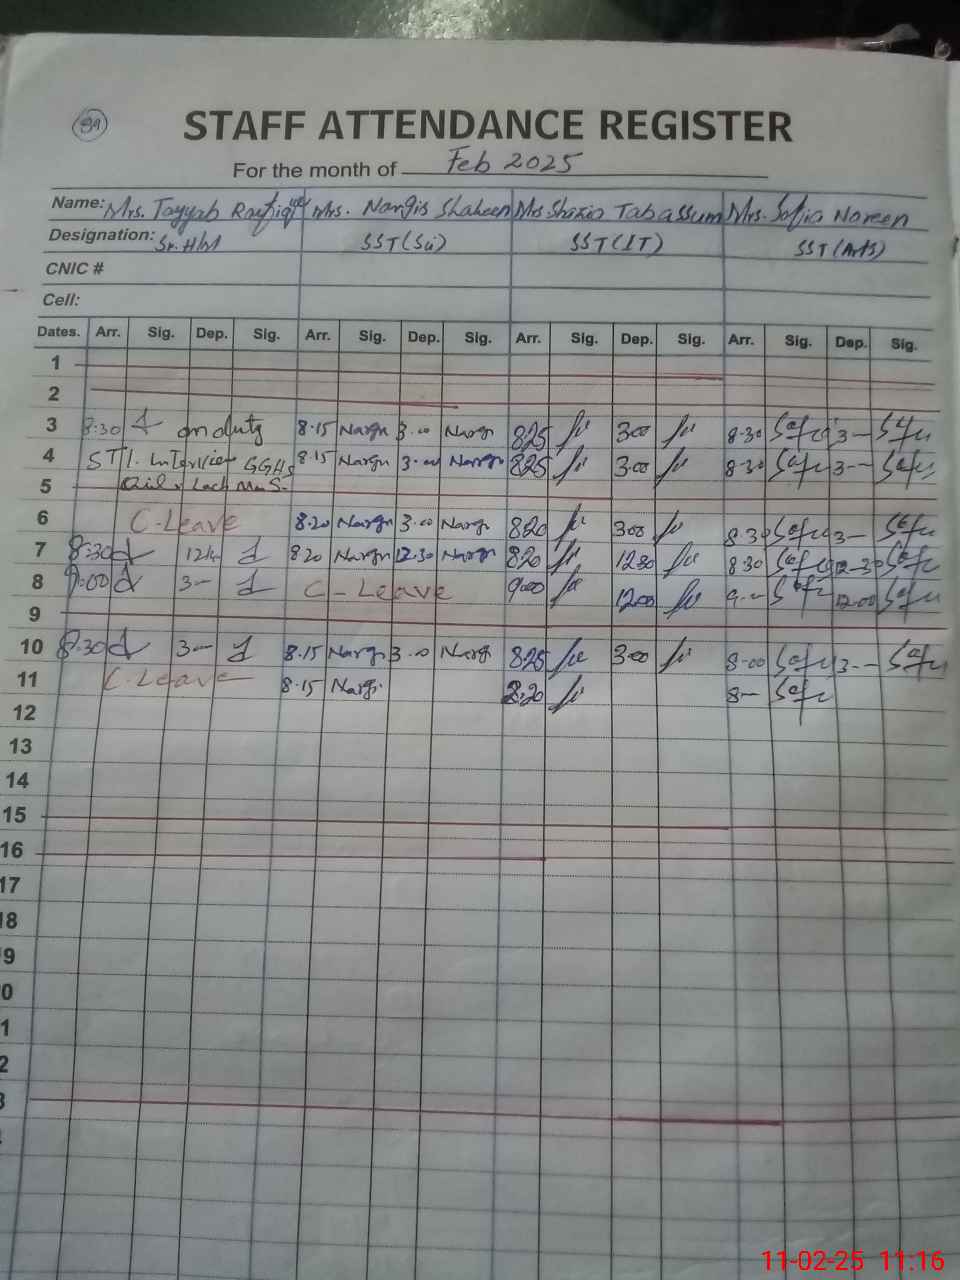 89
STAFF ATTENDANCE REGISTER
For the month of Feb 2025
Name: Mrs. Tayyab Mrs. Nargis Shaheen Mrs Shazia Tabassum Mrs. Sofia Noreen
Designation: Sr. H/M SST (Sci) SST (IT) SST (Arts)
CNIC #
Cell:
Dates. Arr. Sig. Dep. Sig. Arr. Sig. Dep. Sig. Arr. Sig. Dep. Sig. Arr. Sig. Dep. Sig.
1
2
3 8:30 on duty 8.15 Nargis 3.00 Nargis 825 300 8.30 3—
4 STI. Interview GGHS 8.15 Nargis 3.00 Nargis 825 3.00 8.30 3—
5
6 C-Leave 8.20 Nargis 3.00 Nargis 820 300 8.30 3—
7 8:30 12 820 Nargis 12.30 Nargis 820 1230 830 12-30
8 9:00 3— C-Leave 900 1200 9.— 12.00
9
10 8.30 3— 8.15 Nargis 3.00 Nargis 825 300 8.00 3—
11 C.Leave 8.15 Nargis 8.20 8—
12
13
14
15
16
17
18
9
0
1
2
3
11-02-25 11:16